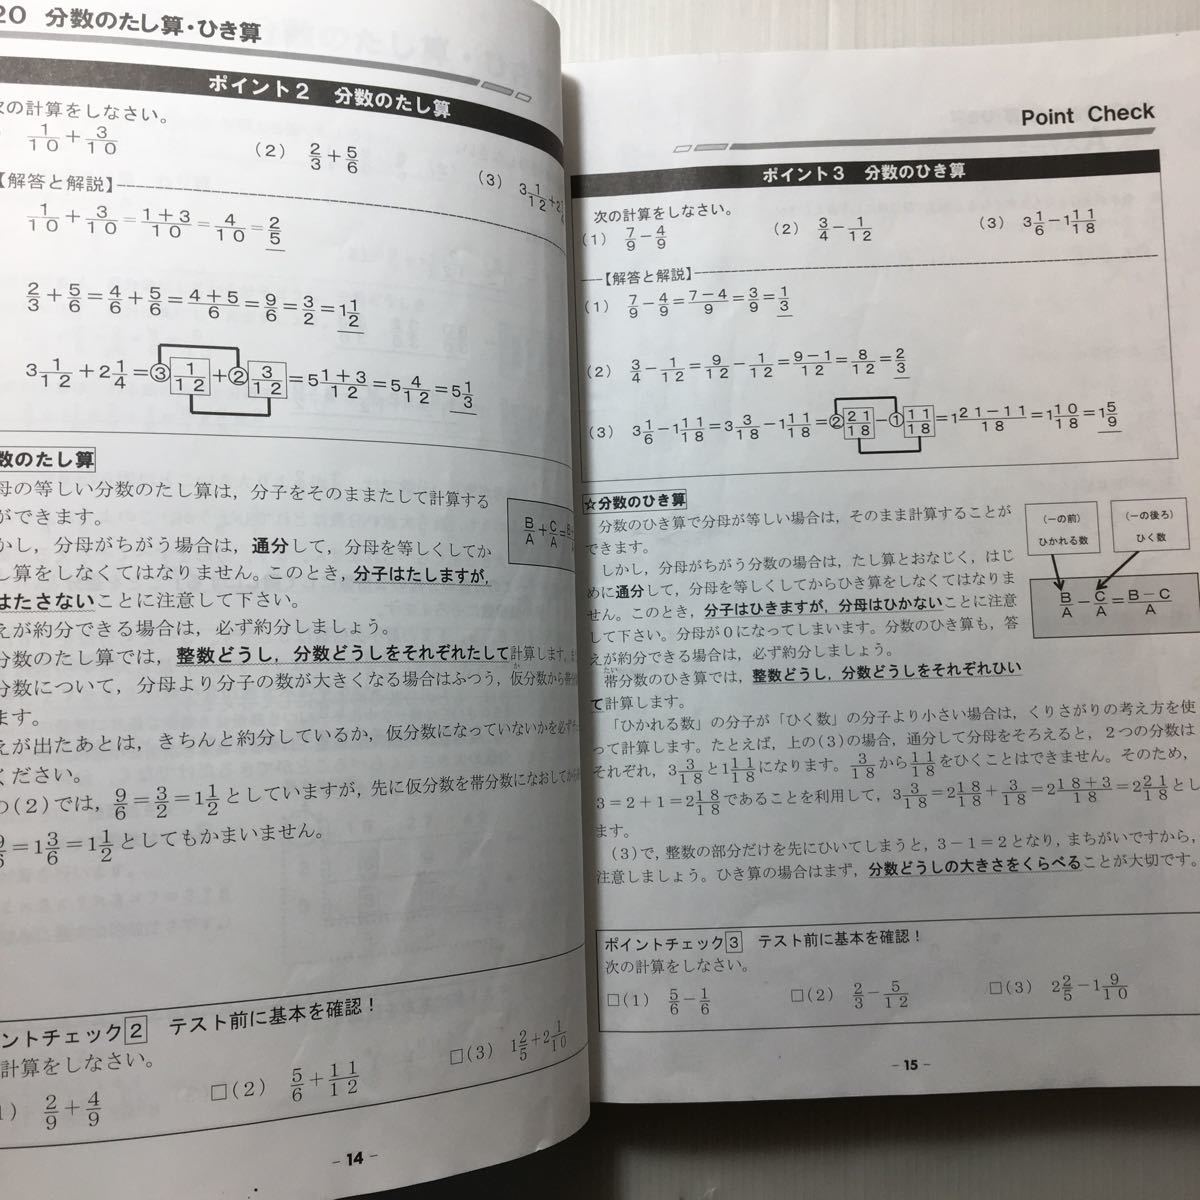 20 分数のたし算・ひき算
ポイント2 分数のたし算
次の計算をしなさい。
1/10+3/10 (2) 2/3+5/6 (3) 3 1/12+2
【解答と解説】
1/10+3/10=1+3/10=4/10=2/5
2/3+5/6=4/6+5/6=4+5/6=9/6=3/2=1 1/2
3 1/12+2 1/4=③1/12+②3/12=5 1+3/12=5 4/12=5 1/3
数のたし算
母の等しい分数のたし算は，分子をそのままたして計算する
ができます。
かし，分母がちがう場合は，通分して，分母を等しくしてか
し算をしなくてはなりません。このとき，分子はたしますが，
はたさないことに注意して下さい。
えが約分できる場合は，必ず約分しましょう。
分数のたし算では，整数どうし，分数どうしをそれぞれたして計算します。
分数について，分母より分子の数が大きくなる場合はふつう，仮分数から帯分
ます。
えが出たあとは，きちんと約分しているか，仮分数になっていないかを必ず
ください。
の(2)では，9/6=3/2=1 1/2としていますが，先に仮分数を帯分数になおしてから
9/6=1 3/6=1 1/2としてもかまいません。
B/A+C/A=
ントチェック2 テスト前に基本を確認！
計算をしなさい。
) 2/9+4/9 □(2) 5/6+11/12 □(3) 1 2/5+2 1/10
- 14 -
Point Check
ポイント3 分数のひき算
次の計算をしなさい。
(1) 7/9-4/9 (2) 3/4-1/12 (3) 3 1/6-1 11/18
【解答と解説】
(1) 7/9-4/9=7-4/9=3/9=1/3
(2) 3/4-1/12=9/12-1/12=9-1/12=8/12=2/3
(3) 3 1/6-1 11/18=3 3/18-1 11/18=②21/18-①11/18=1 21-11/18=1 10/18=1 5/9
☆分数のひき算
分数のひき算で分母が等しい場合は，そのまま計算することが
できます。
しかし，分母がちがう分数の場合は，たし算とおなじく，はじ
めに通分して，分母を等しくしてからひき算をしなくてはなりま
せん。このとき，分子はひきますが，分母はひかないことに注意
して下さい。分母が0になってしまいます。分数のひき算も，答
えが約分できる場合は，必ず約分しましょう。
帯分数のひき算では，整数どうし，分数どうしをそれぞれひい
て計算します。
(-の前)
ひかれる数
(-の後ろ)
ひく数
B/A-C/A=B-C/A
「ひかれる数」の分子が「ひく数」の分子より小さい場合は，くりさがりの考え方を使
って計算します。たとえば，上の(3)の場合，通分して分母をそろえると，2つの分数は
それぞれ，3 3/18と1 11/18になります。3/18から11/18をひくことはできません。そのため，
3=2+1=2 18/18であることを利用して，3 3/18=2 18/18+3/18=2 18+3/18=2 21/18とし
ます。
(3)で，整数の部分だけを先にひいてしまうと，3-1=2となり，まちがいですから，
注意しましょう。ひき算の場合はまず，分数どうしの大きさをくらべることが大切です。
ポイントチェック3 テスト前に基本を確認！
次の計算をしなさい。
□(1) 5/6-1/6 □(2) 2/3-5/12 □(3) 2 2/5-1 9/10
- 15 -